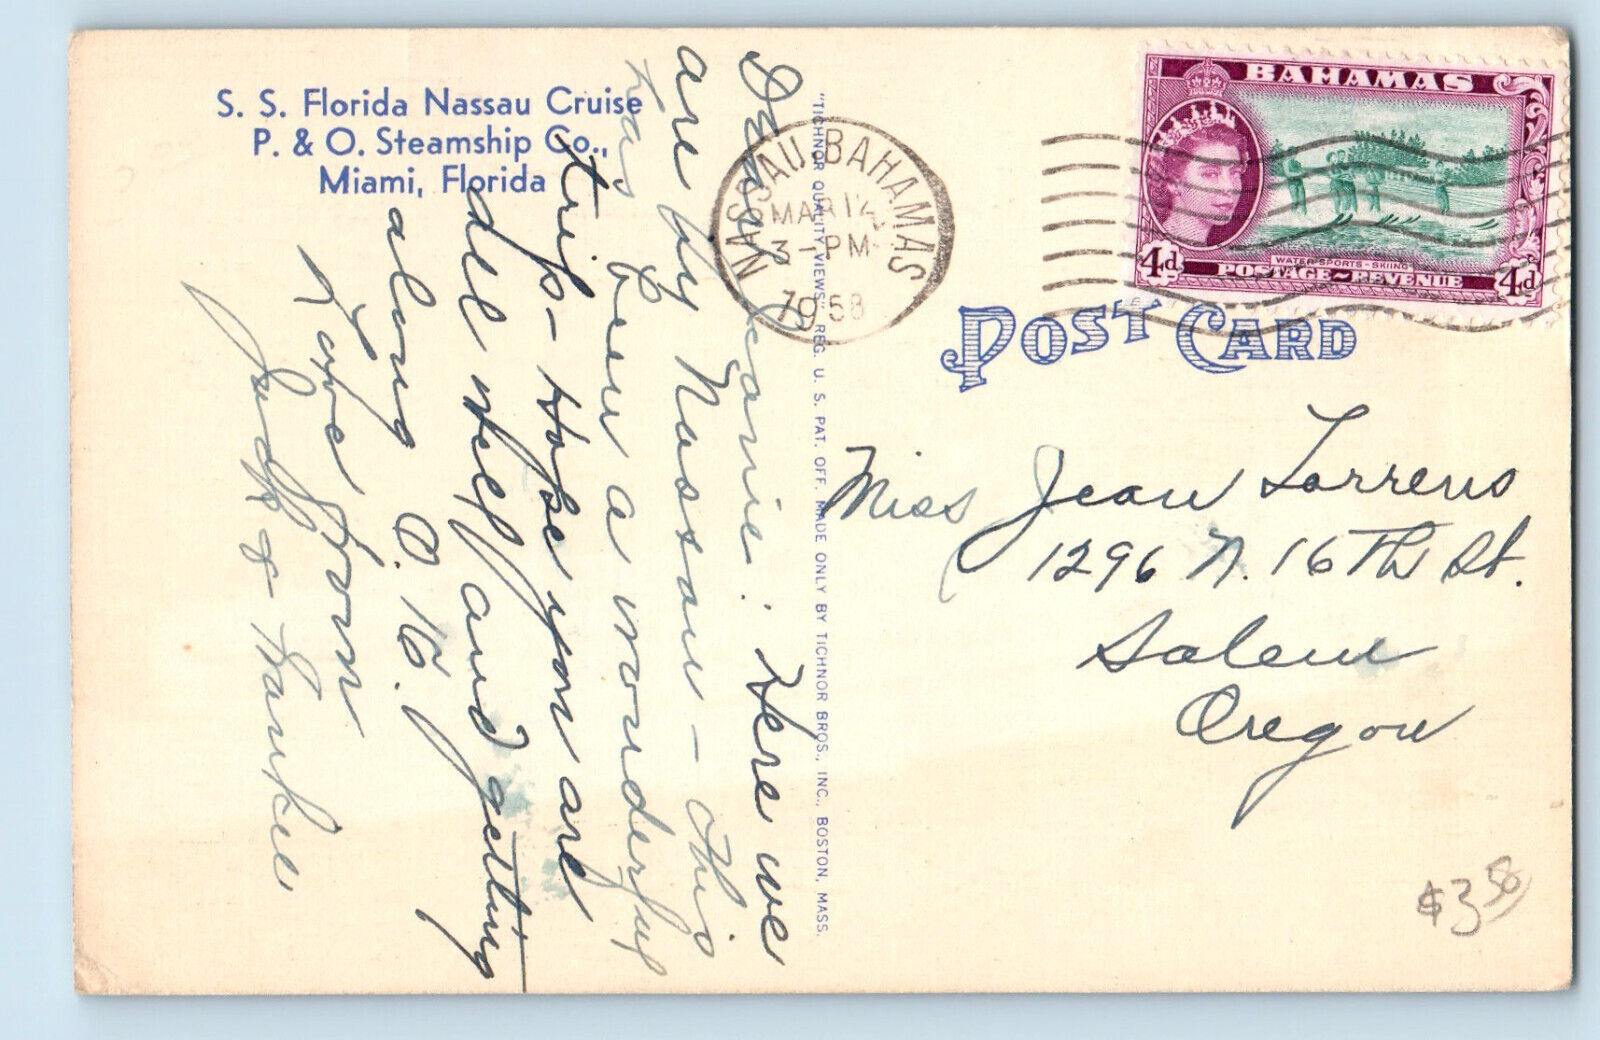 S. S. Florida Nassau Cruise
P. & O. Steamship Co.,
Miami, Florida
Dear Jeanie: Here we
are by Nassau - this
has been a wonderful
trip - Hope you are
all well and getting
along O.K.
Love from
Judy & Frankie
"TICHNOR QUALITY VIEWS" REG. U. S. PAT. OFF. MADE ONLY BY TICHNOR BROS., INC., BOSTON, MASS.
NASSAU BAHAMAS
MAR 12
3 - PM
1958
BAHAMAS
WATER SPORTS - SKIING
4d POSTAGE ~ REVENUE 4d
POST CARD
Miss Jean Torrens
1296 N. 16Th St.
Salem
Oregon
$3.50